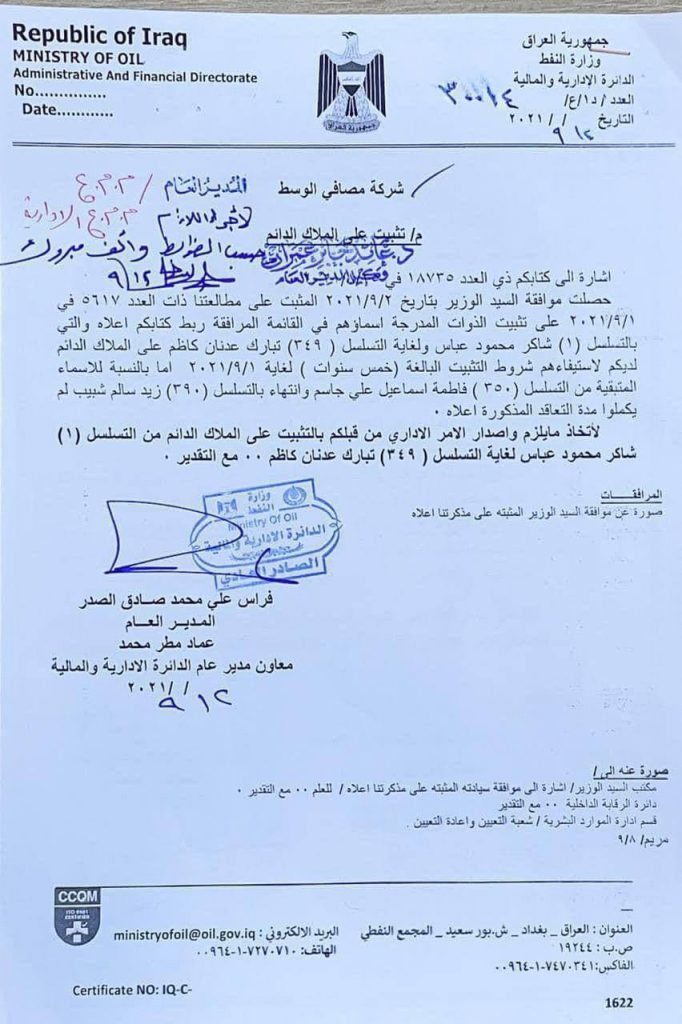 Republic of Iraq
MINISTRY OF OIL
Administrative And Financial Directorate
No...............
Date............
جمهورية العراق
جمهورية العراق
وزارة النفط
الدائرة الإدارية والمالية
العدد / د١/ع/ ٣٠٠١٤
التاريخ / / ٢٠٢١
٩ ١٢
شركة مصافي الوسط
المدير العام
م.م.ع /
م.م.ع الادارية
لاجراء اللازم
حسب الضوابط والف مبروك
٩ ١٢
م/ تثبيت على الملاك الدائم
اشارة الى كتابكم ذي العدد ١٨٧٣٥ في
حصلت موافقة السيد الوزير بتاريخ ٢٠٢١/٩/٢ المثبت على مطالعتنا ذات العدد ٥٦١٧ في
٢٠٢١/٩/١ على تثبيت الذوات المدرجة اسماؤهم في القائمة المرافقة ربط كتابكم اعلاه والتي
بالتسلسل (١) شاكر محمود عباس ولغاية التسلسل ( ٣٤٩) تبارك عدنان كاظم على الملاك الدائم
لديكم لاستيفاءهم شروط التثبيت البالغة (خمس سنوات ) لغاية ٢٠٢١/٩/١ اما بالنسبة للاسماء
المتبقية من التسلسل ( ٣٥٠) فاطمة اسماعيل علي جاسم وانتهاء بالتسلسل (٣٩٠) زيد سالم شبيب لم
يكملوا مدة التعاقد المذكورة اعلاه ٠
لأتخاذ مايلزم واصدار الامر الاداري من قبلكم بالتثبيت على الملاك الدائم من التسلسل (١)
شاكر محمود عباس لغاية التسلسل ( ٣٤٩) تبارك عدنان كاظم ٠٠ مع التقدير ٠
المرافقات
صورة عن موافقة السيد الوزير المثبته على مذكرتنا اعلاه
وزارة النفط
Ministry Of Oil
الدائرة الادارية والمالية
الصادر العادي
فراس علي محمد صادق الصدر
المدير العام
عماد مطر محمد
معاون مدير عام الدائرة الادارية والمالية
/ / ٢٠٢١
٩ ١٢
صورة عنه الى/
مكتب السيد الوزير/ اشارة الى موافقة سيادته المثبته على مذكرتنا اعلاه / للعلم ٠٠ مع التقدير ٠
دائرة الرقابة الداخلية ٠٠ مع التقدير
قسم ادارة الموارد البشرية / شعبة التعيين واعادة التعيين .
مريم/ ٩/٨
CCQM
العنوان : العراق _ بغداد _ ش.بور سعيد _ المجمع النفطي
ص.ب : ١٩٢٤٤
الفاكس: ٧٤٧٠٣٤١-١-٠٠٩٦٤
البريد الالكتروني : ministryofoil@oil.gov.iq
الهاتف: ٧٢٧٠٧١٠-١-٠٠٩٦٤
Certificate NO: IQ-C-
1622